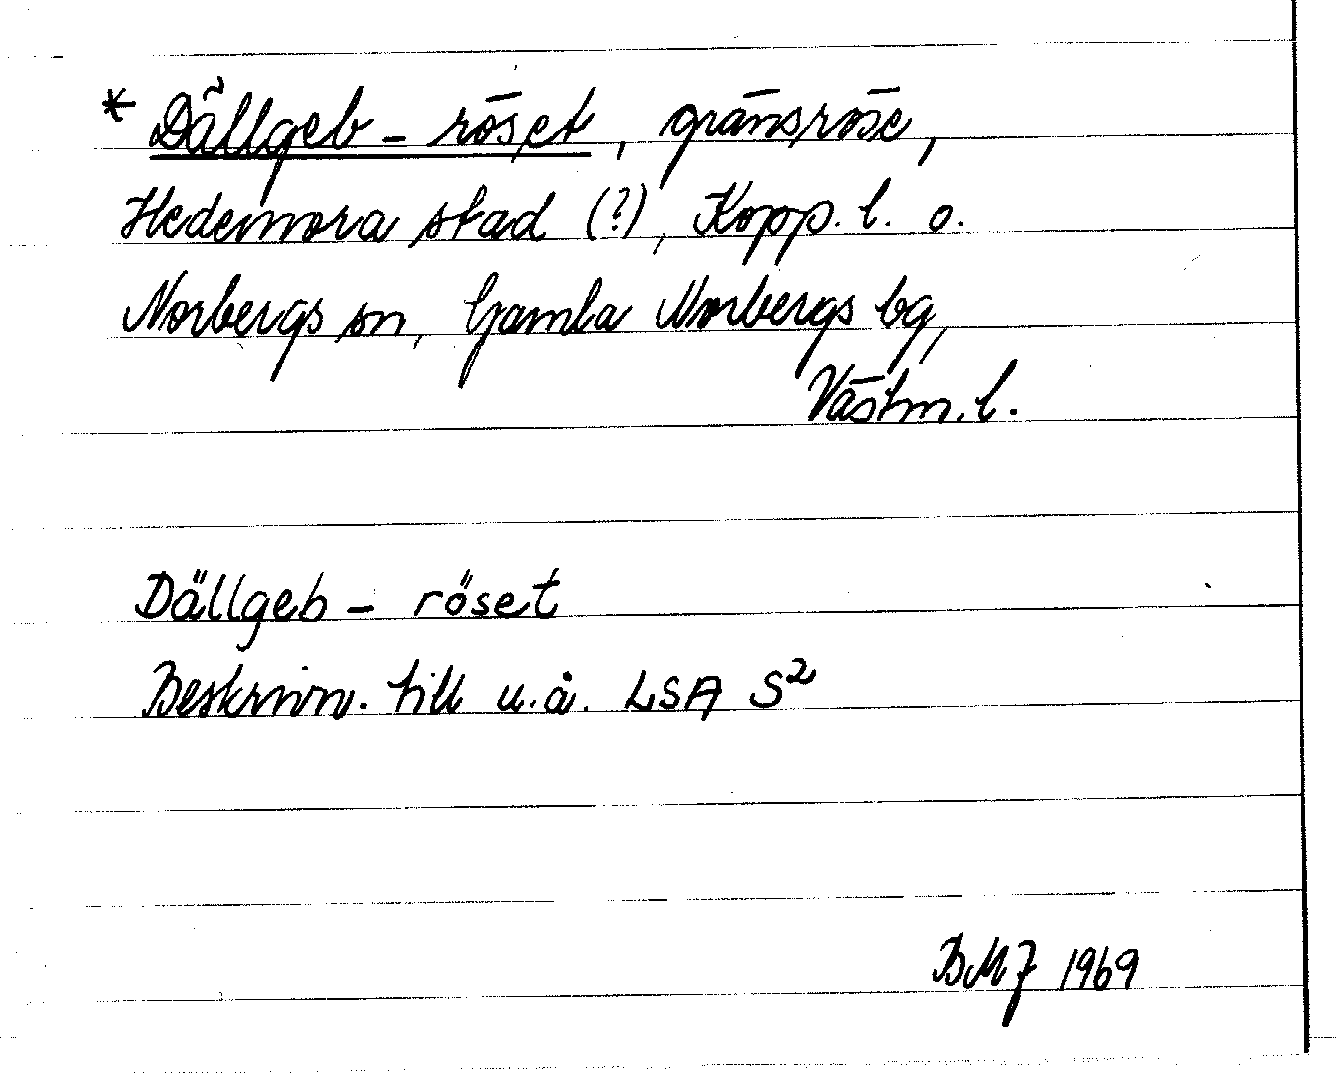 * Dällgeb - röset, gränsröse,
Hedemora stad (?), Kopp. l. o.
Norbergs sn, Gamla Norbergs bg,
Västm. l.
Dällgeb - röset
Beskrivn. till u.å. LSA S²
BMJ 1969